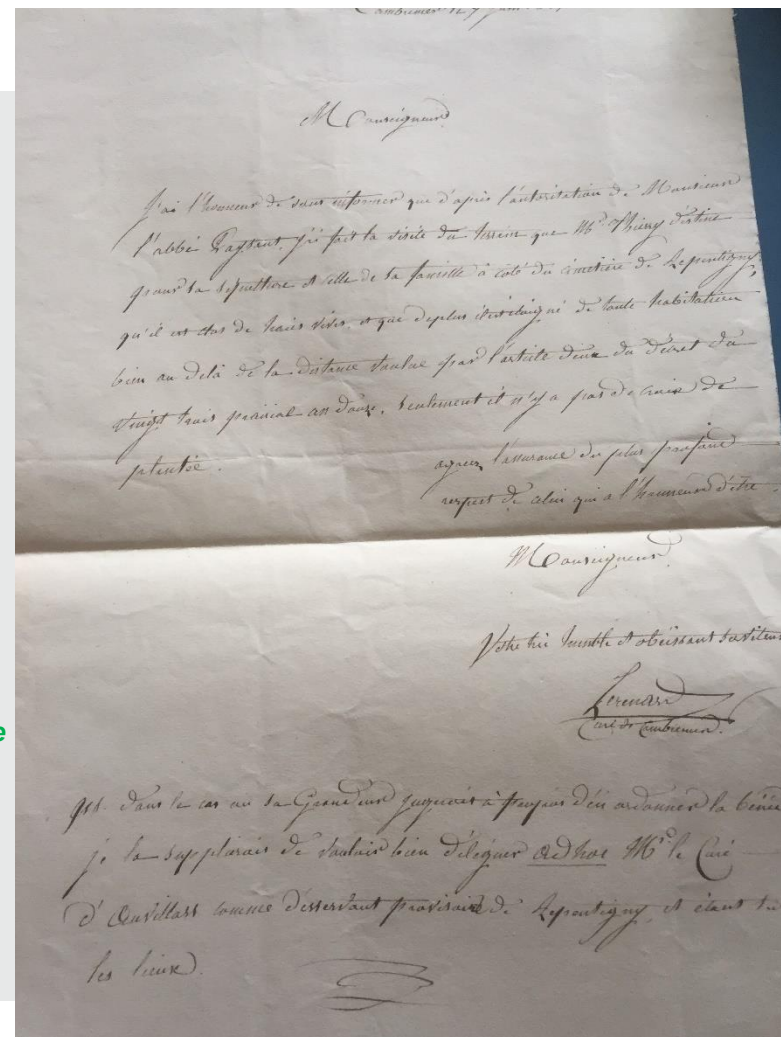 Cambremer le 7 juin
Monseigneur
J'ai l'honneur de vous informer que d'après l'autorisation de Monsieur
l'abbé j'ai fait la visite du terrein que Mr. Thierry destine
pour sa sepulture et celle de sa famille à coté du cimetière de Repentigny,
qu'il est clos de haies vives, et que de plus il est éloigné de toute habitation
bien au delà de la distance voulue par l'article deux du décret du
vingt trois prairial an douze, seulement il n'y a pas de croix de
plantée.
agreez l'assurance du plus profond
respect de celui qui a l'honneur d'être.
Monseigneur
Votre très humble et obéissant serviteur
Lerenard
Curé de Cambremer.
PSS. Dans le cas ou sa Grandeur jugerait à propos d'en ordonner la béné
je la supplierais de vouloir bien déléguer ad hoc Mr. le Curé
d'Auvillars comme desservant provisoire de Repentigny, et étant su
les lieux.
e